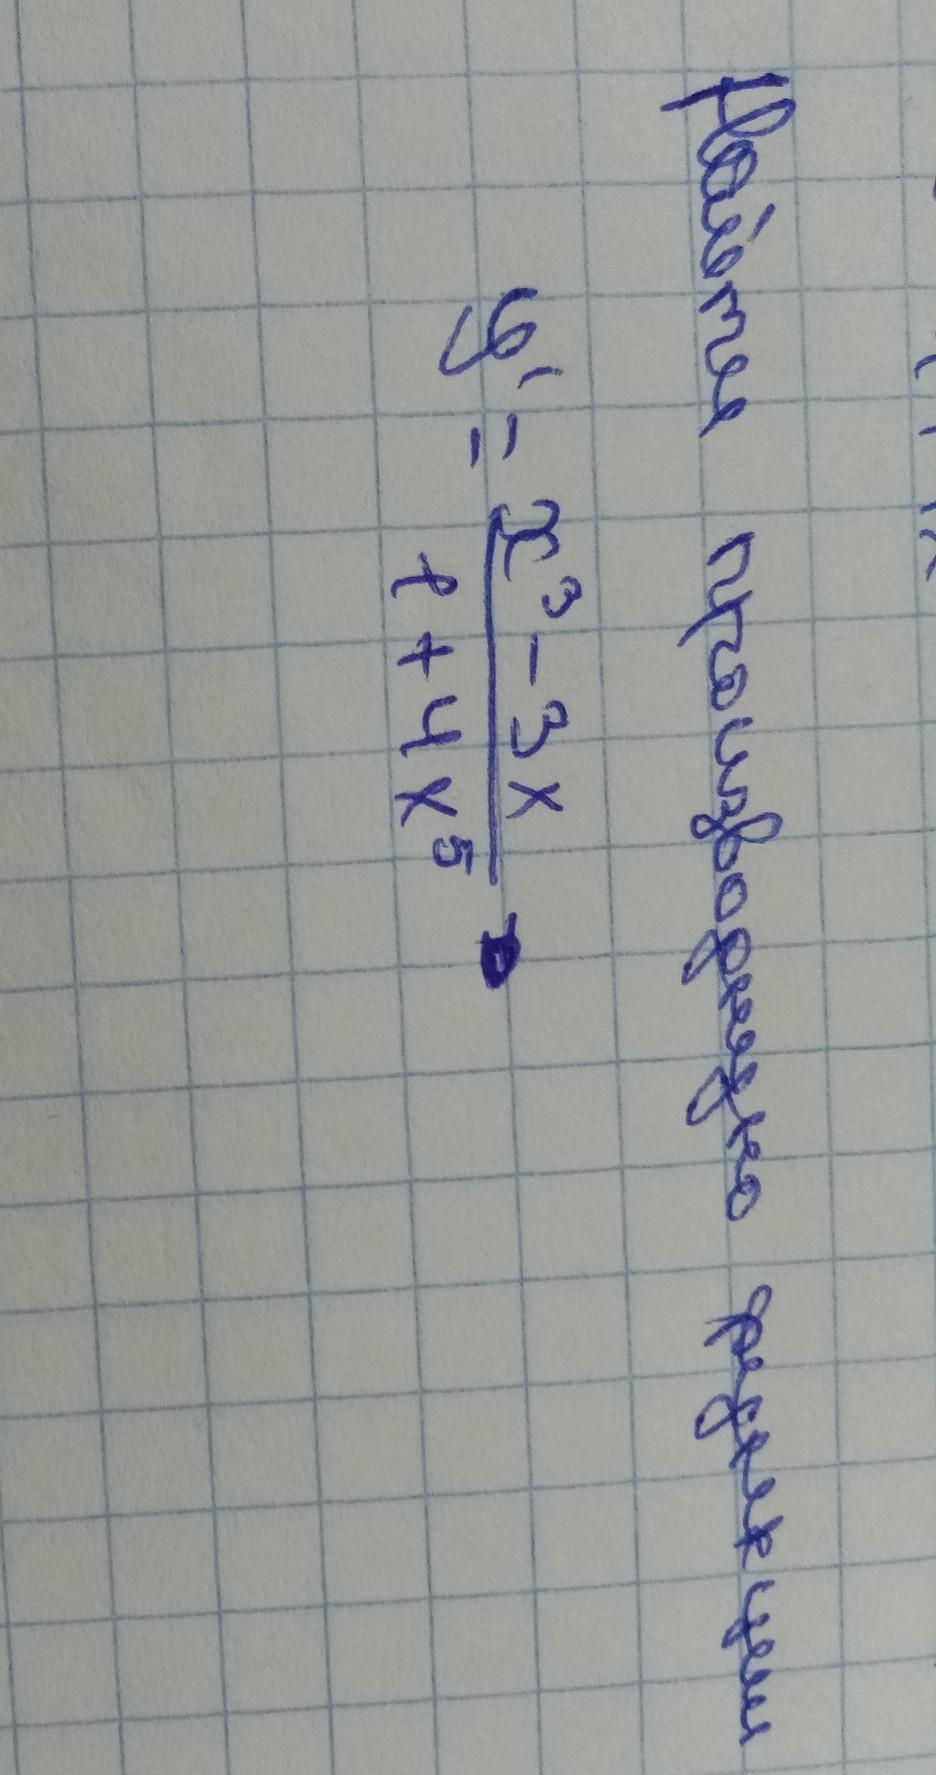 Найдите производную функции
y' = \frac{x^3 - 3x}{1 + 4x^5}